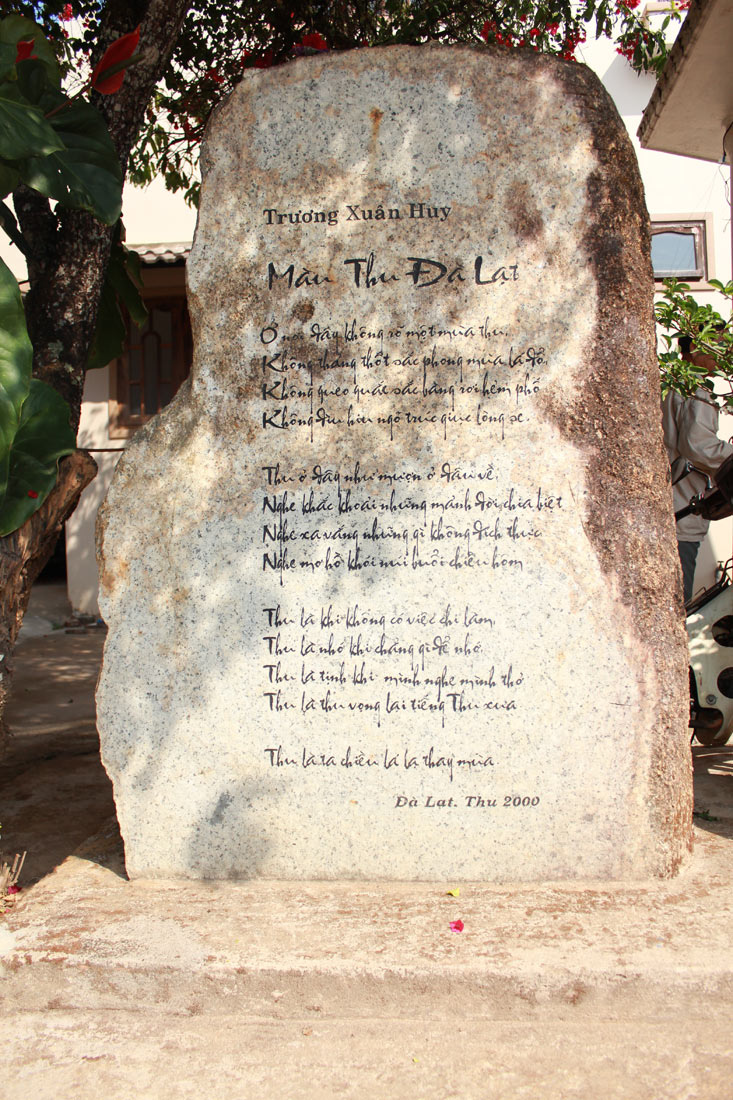 Trương Xuân Huy
Màu Thu Đà Lạt
Ở nơi đây không rõ một mùa thu,
Không thảng thốt sắc phong mùa lá đổ.
Không queo quắt sắc bàng rơi hẻm phố
Không đìu hiu ngô trúc giục lòng se.
Thu ở đây như mượn ở đâu về,
Nghe khắc khoải những mảnh đời chia biệt
Nghe xa vắng những gì không đích thực
Nghe mơ hồ khói núi buổi chiều hôm
Thu là khi không có việc chi làm,
Thu là nhớ khi chẳng gì để nhớ.
Thu là tịnh khi mình nghe mình thở
Thu là thu vọng lại tiếng Thu xưa
Thu là ta chiều lá lạ thay mùa
Đà Lạt. Thu 2000